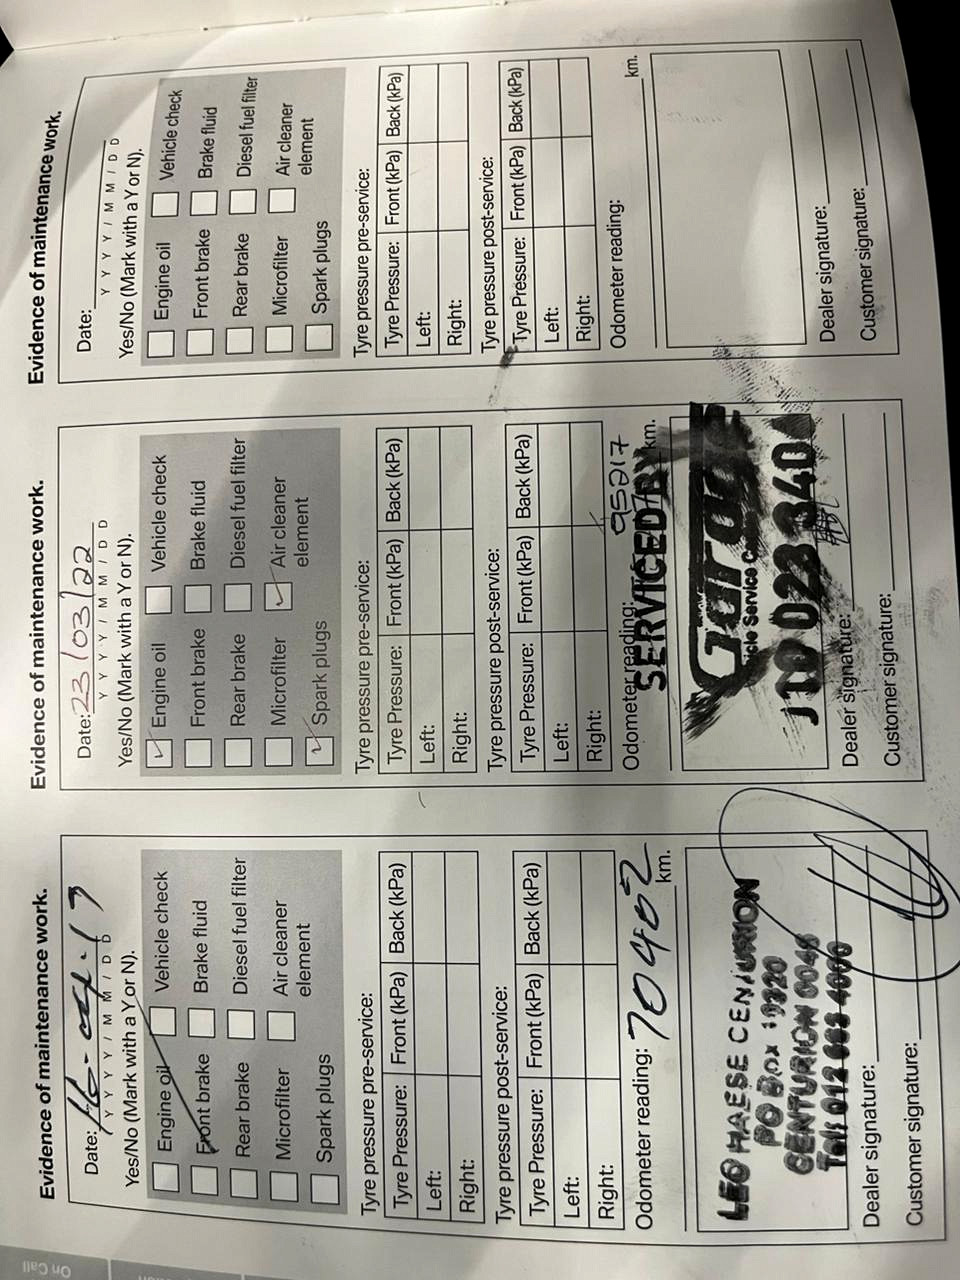 Evidence of maintenance work.
Date: 16-04-17
Y Y Y Y / M M / D D
Yes/No (Mark with a Y or N).
Engine oil Vehicle check
Front brake Brake fluid
Rear brake Diesel fuel filter
Microfilter Air cleaner
element
Spark plugs
Tyre pressure pre-service:
Tyre Pressure: Front (kPa) Back (kPa)
Left:
Right:
Tyre pressure post-service:
Tyre Pressure: Front (kPa) Back (kPa)
Left:
Right:
Odometer reading: 70402 km.
LEO HAESE CENTURION
PO BOX 19320
CENTURION 0046
Dealer signature:
Customer signature:
Evidence of maintenance work.
Date: 23/03/22
Y Y Y Y / M M / D D
Yes/No (Mark with a Y or N).
Engine oil Vehicle check
Front brake Brake fluid
Rear brake Diesel fuel filter
Microfilter Air cleaner
element
Spark plugs
Tyre pressure pre-service:
Tyre Pressure: Front (kPa) Back (kPa)
Left:
Right:
Tyre pressure post-service:
Tyre Pressure: Front (kPa) Back (kPa)
Left:
Right:
Odometer reading: 95217 km.
SERVICED BY
Dealer signature:
Customer signature:
Evidence of maintenance work.
Date:
Y Y Y Y / M M / D D
Yes/No (Mark with a Y or N).
Engine oil Vehicle check
Front brake Brake fluid
Rear brake Diesel fuel filter
Microfilter Air cleaner
element
Spark plugs
Tyre pressure pre-service:
Tyre Pressure: Front (kPa) Back (kPa)
Left:
Right:
Tyre pressure post-service:
Tyre Pressure: Front (kPa) Back (kPa)
Left:
Right:
Odometer reading:
km.
Dealer signature:
Customer signature:
On Call